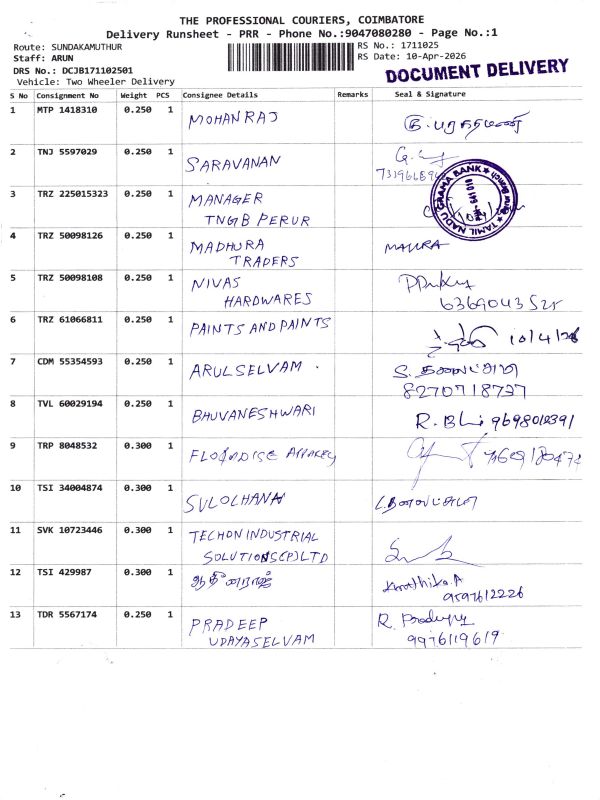 THE PROFESSIONAL COURIERS, COIMBATORE
Delivery Runsheet - PRR - Phone No.:9047080280 - Page No.:1
Route: SUNDAKAMUTHUR
RS No.: 1711025
Staff: ARUN
RS Date: 10-Apr-2026
DRS No.: DCJB171102501
Vehicle: Two Wheeler Delivery
DOCUMENT DELIVERY
S No Consignment No Weight PCS Consignee Details Remarks Seal & Signature
1 MTP 1418310 0.250 1 MOHANRAJ
2 TNJ 5597029 0.250 1 SARAVANAN
3 TRZ 225015323 0.250 1 MANAGER
TNGB PERUR
TAMIL NADU GRAMA BANK
4 TRZ 50098126 0.250 1 MADHURA
TRADERS
5 TRZ 50098108 0.250 1 NIVAS
HARDWARES
6 TRZ 61066811 0.250 1 PAINTS AND PAINTS 10/4/26
7 CDM 55354593 0.250 1 ARULSELVAM
8270718737
8 TVL 60029194 0.250 1 BHUVANESHWARI
9698012391
9 TRP 8048532 0.300 1
10 TSI 34004874 0.300 1 SULOCHANA
11 SVK 10723446 0.300 1 TECHON INDUSTRIAL
SOLUTIONS(P)LTD
12 TSI 429987 0.300 1
9597612226
13 TDR 5567174 0.250 1 PRADEEP
UDAYASELVAM
9976119619